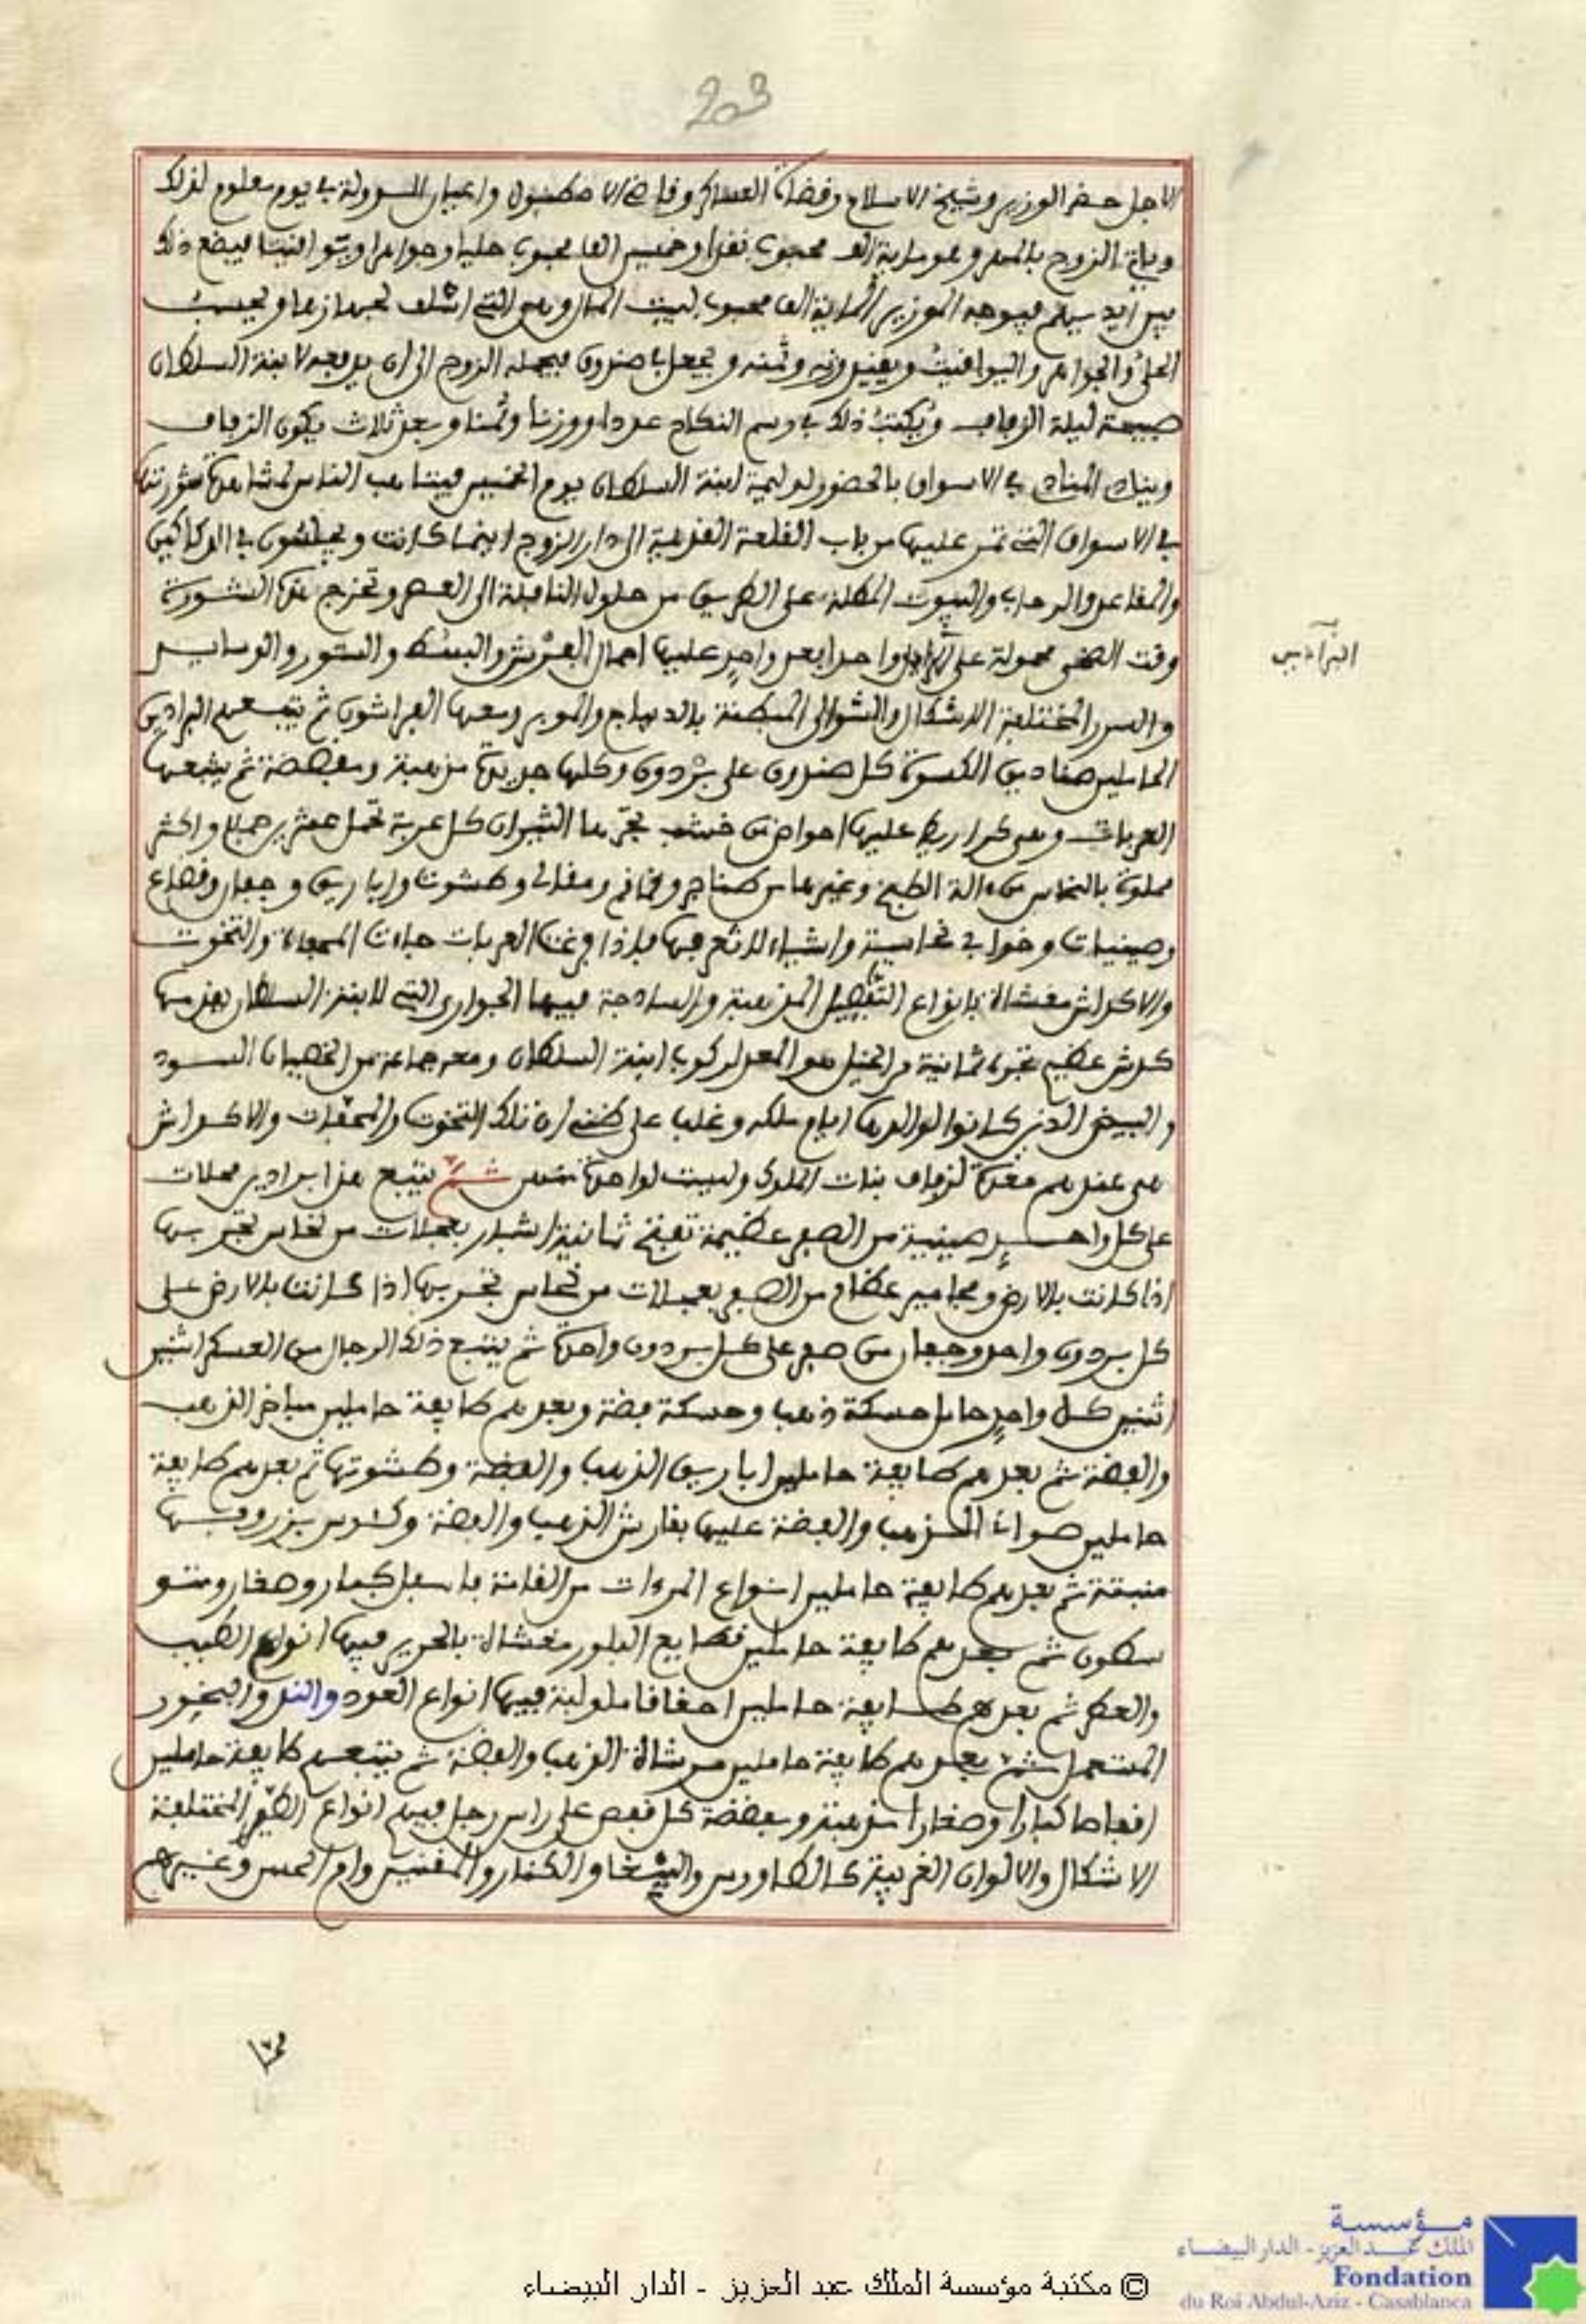 203
الاجل حضر الوزير وشيخ الاسلام وقضاة العساكر وقاضي الاصطنبول واعيان الدولة في يوم معلوم لذلك
وياتي الزوج بالمهر وهو ماية الف محبوب نقدا وخمسين الف محبوب حليا وجواهرا ويواقيتا فيضع ذلك
بين ايديهم فيوجه الوزير الماية الف محبوب لبيت المال وهي التي اشلف لجهازها ويحسب
الحلي والجواهر واليواقيت ويقيد وزنه وثمنه ويجعل في صندوق فيحمله الزوج الى ان يدفعه لابنة السلطان
صبيحة ليلة الزفاف ويكتب ذلك في رسم النكاح عددا ووزنا وثمنا وبعد ثلاث يكون الزفاف
وينادي المنادي في الاسواق بالحضور لوليمة ابنة السلطان يوم الخميس فيتاهب الناس لمشاهدة شورتها
في الاسواق التي تمر عليها من باب القلعة القديمة الى دار الزوج اينما كانت ويجلسون في الدكاكين
والمقاعد والرحاب والبيوت المطلة على الطريق من حلول النافلة الى العصر وتخرج هذه الشورة
وقت الضحى محمولة على واحدا بعد واحد عليها احمال الفرش والبسط والستور والوسايد
البرادين
والسرر المختلفة الاشكال والشوالي المبطنة بالديباج والموبر ومعها الفراشون ثم يتبعهم البرادين
الحاملين صناديق الكسوة كل صندوق على بردون وكلها جديدة مذهبة ومفضضة ثم يتبعها
العربات وهي كراريط عليها احواض من خشب تجرها الثيران كل عربة تحمل عشرين حملا واكثر
مملوة بالنحاس من ءالة الطبخ وغيرها من طناجر وقماقم ومقالي وطشوت واباريق وجفار وقصاع
وصينيات وخوابي نحاسية واشياء لا تعرفها فاذا فرغت العربات جاءت المحفاة والتخوت
والاكداش مغشاة بانواع التفصيل المذهبة والساذجة فيها الجواري التي لابنة السلطان يقدمها
كدش عظيم تجره ثمانية من الخيل هو المعد لركوب ابنة السلطان ومعه جماعة من الخصيان السود
والبيض الذين كانوا لوالدها ايام ملكه وغلب على ظني ان تلك التخوت والمحفات والاكداش
هي عندهم معدة لزفاف بنات الملوك وليست لواحدة منهن ثم يتبع هذا برادين محملات
على كل واحد صينية من الصفر عظيمة تفتح ثمانية اشبار بعجلات من نحاس تجر بها
اذا كانت بالارض ومجامير عظام من الصفر بعجلات من نحاس تجر بها اذا كانت بالارض على
كل بردون واحد وجفار من صفر على كل بردون واحدة ثم يتبع ذلك الرجال من العسكر اثنين
اثنين كل واحد حامل حسكة ذهب وحسكة فضة وبعدهم طايفة حاملين مباخر الذهب
والفضة ثم بعدهم طايفة حاملين اباريق الذهب والفضة وطشوتها ثم بعدهم طايفة
حاملين صواني الذهب والفضة عليها بقارش الذهب والفضة وكئوس بزروفها
منبتة ثم بعدهم طايفة حاملين انواع المرءات من القامة فاسفل كبار وصغار ومتو
سطون ثم بعدهم طايفة حاملين قطايع البلور مغشاة بالحرير فيها انواع الطيب
والعطر ثم بعدهم طايفة حاملين احقاقا ملولبة فيها انواع العود والند والبخور
المستعمل ثم بعدهم طايفة حاملين مرشاة الذهب والفضة ثم يتبعهم طايفة حاملين
اقفاصا كبارا وصغارا مذهبة ومفضضة كل قفص على راس رجل فيهم انواع الطير المختلفة
الاشكال والالوان الغريبة كالطاووس والببغا والكنار والمقنين وام الحسن وغيرهم
© مكتبة مؤسسة الملك عبد العزيز - الدار البيضاء
مؤسسة
الملك عبد العزيز - الدار البيضاء
Fondation
du Roi Abdul-Aziz - Casablanca